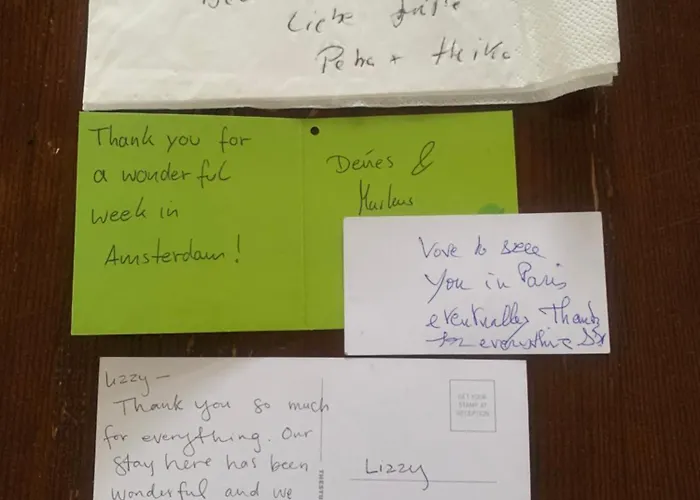 Liebe Grüße
Petra + Heike
Thank you for
a wonderful
week in
Amsterdam!
Denes &
Markus
Love to seee
you in Paris
eventually Thanks
for everything
Lizzy —
Thank you so much
for everything. Our
stay here has been
wonderful and we
GET YOUR
STAMP AT
RECEPTION
Lizzy